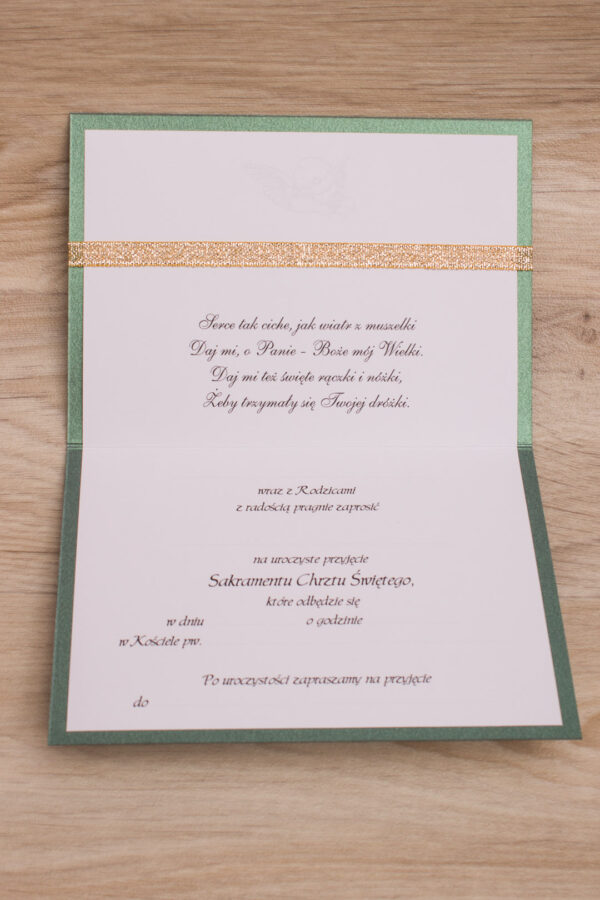 Serce tak ciche, jak wiatr z muszelki
Daj mi, o Panie - Boże mój Wielki.
Daj mi też święte rączki i nóżki,
Żeby trzymały się Twojej dróżki.
wraz z Rodzicami
z radością pragnie zaprosić
na uroczyste przyjęcie
Sakramentu Chrztu Świętego,
które odbędzie się
w dniu o godzinie
w Kościele pw.
Po uroczystości zapraszamy na przyjęcie
do